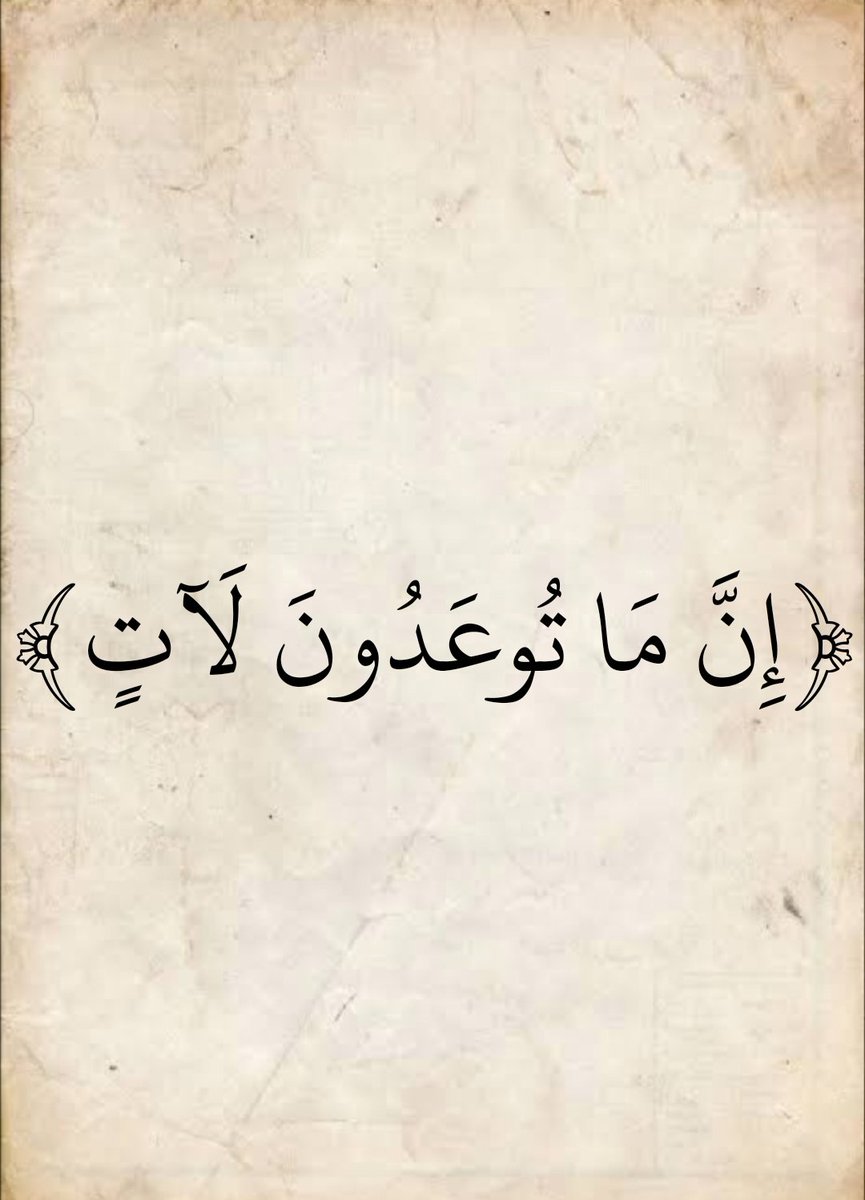 ﴿إِنَّ مَا تُوعَدُونَ لَآتٍ﴾